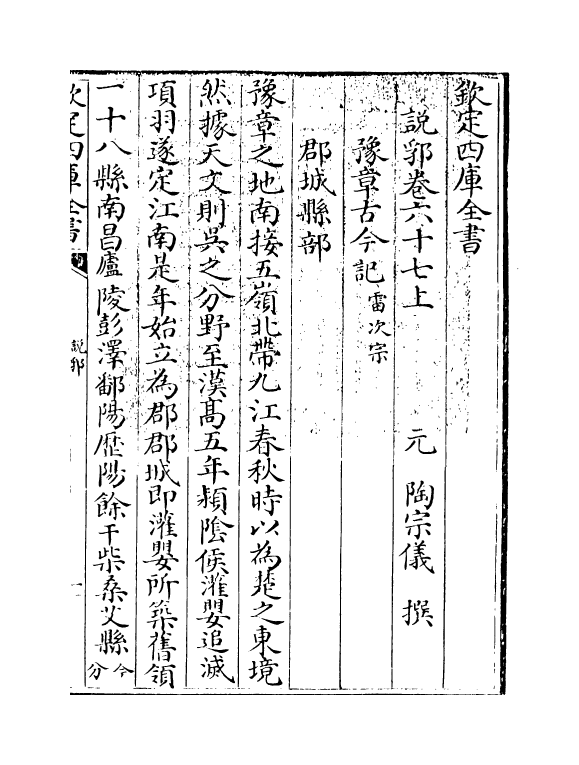 欽定四庫全書
說郛卷六十七上　元　陶宗儀　撰
豫章古今記 雷次宗
郡城縣部
豫章之地南接五嶺北帶九江春秋時以為楚之東境
然據天文則吳之分野至漢髙五年頻隂侯灌嬰追滅
項羽遂定江南是年始立為郡郡城即灌嬰所築舊領
一十八縣南昌廬陵彭澤鄱陽歴陽餘干柴桑艾縣今分
欽定四庫全書
說郛